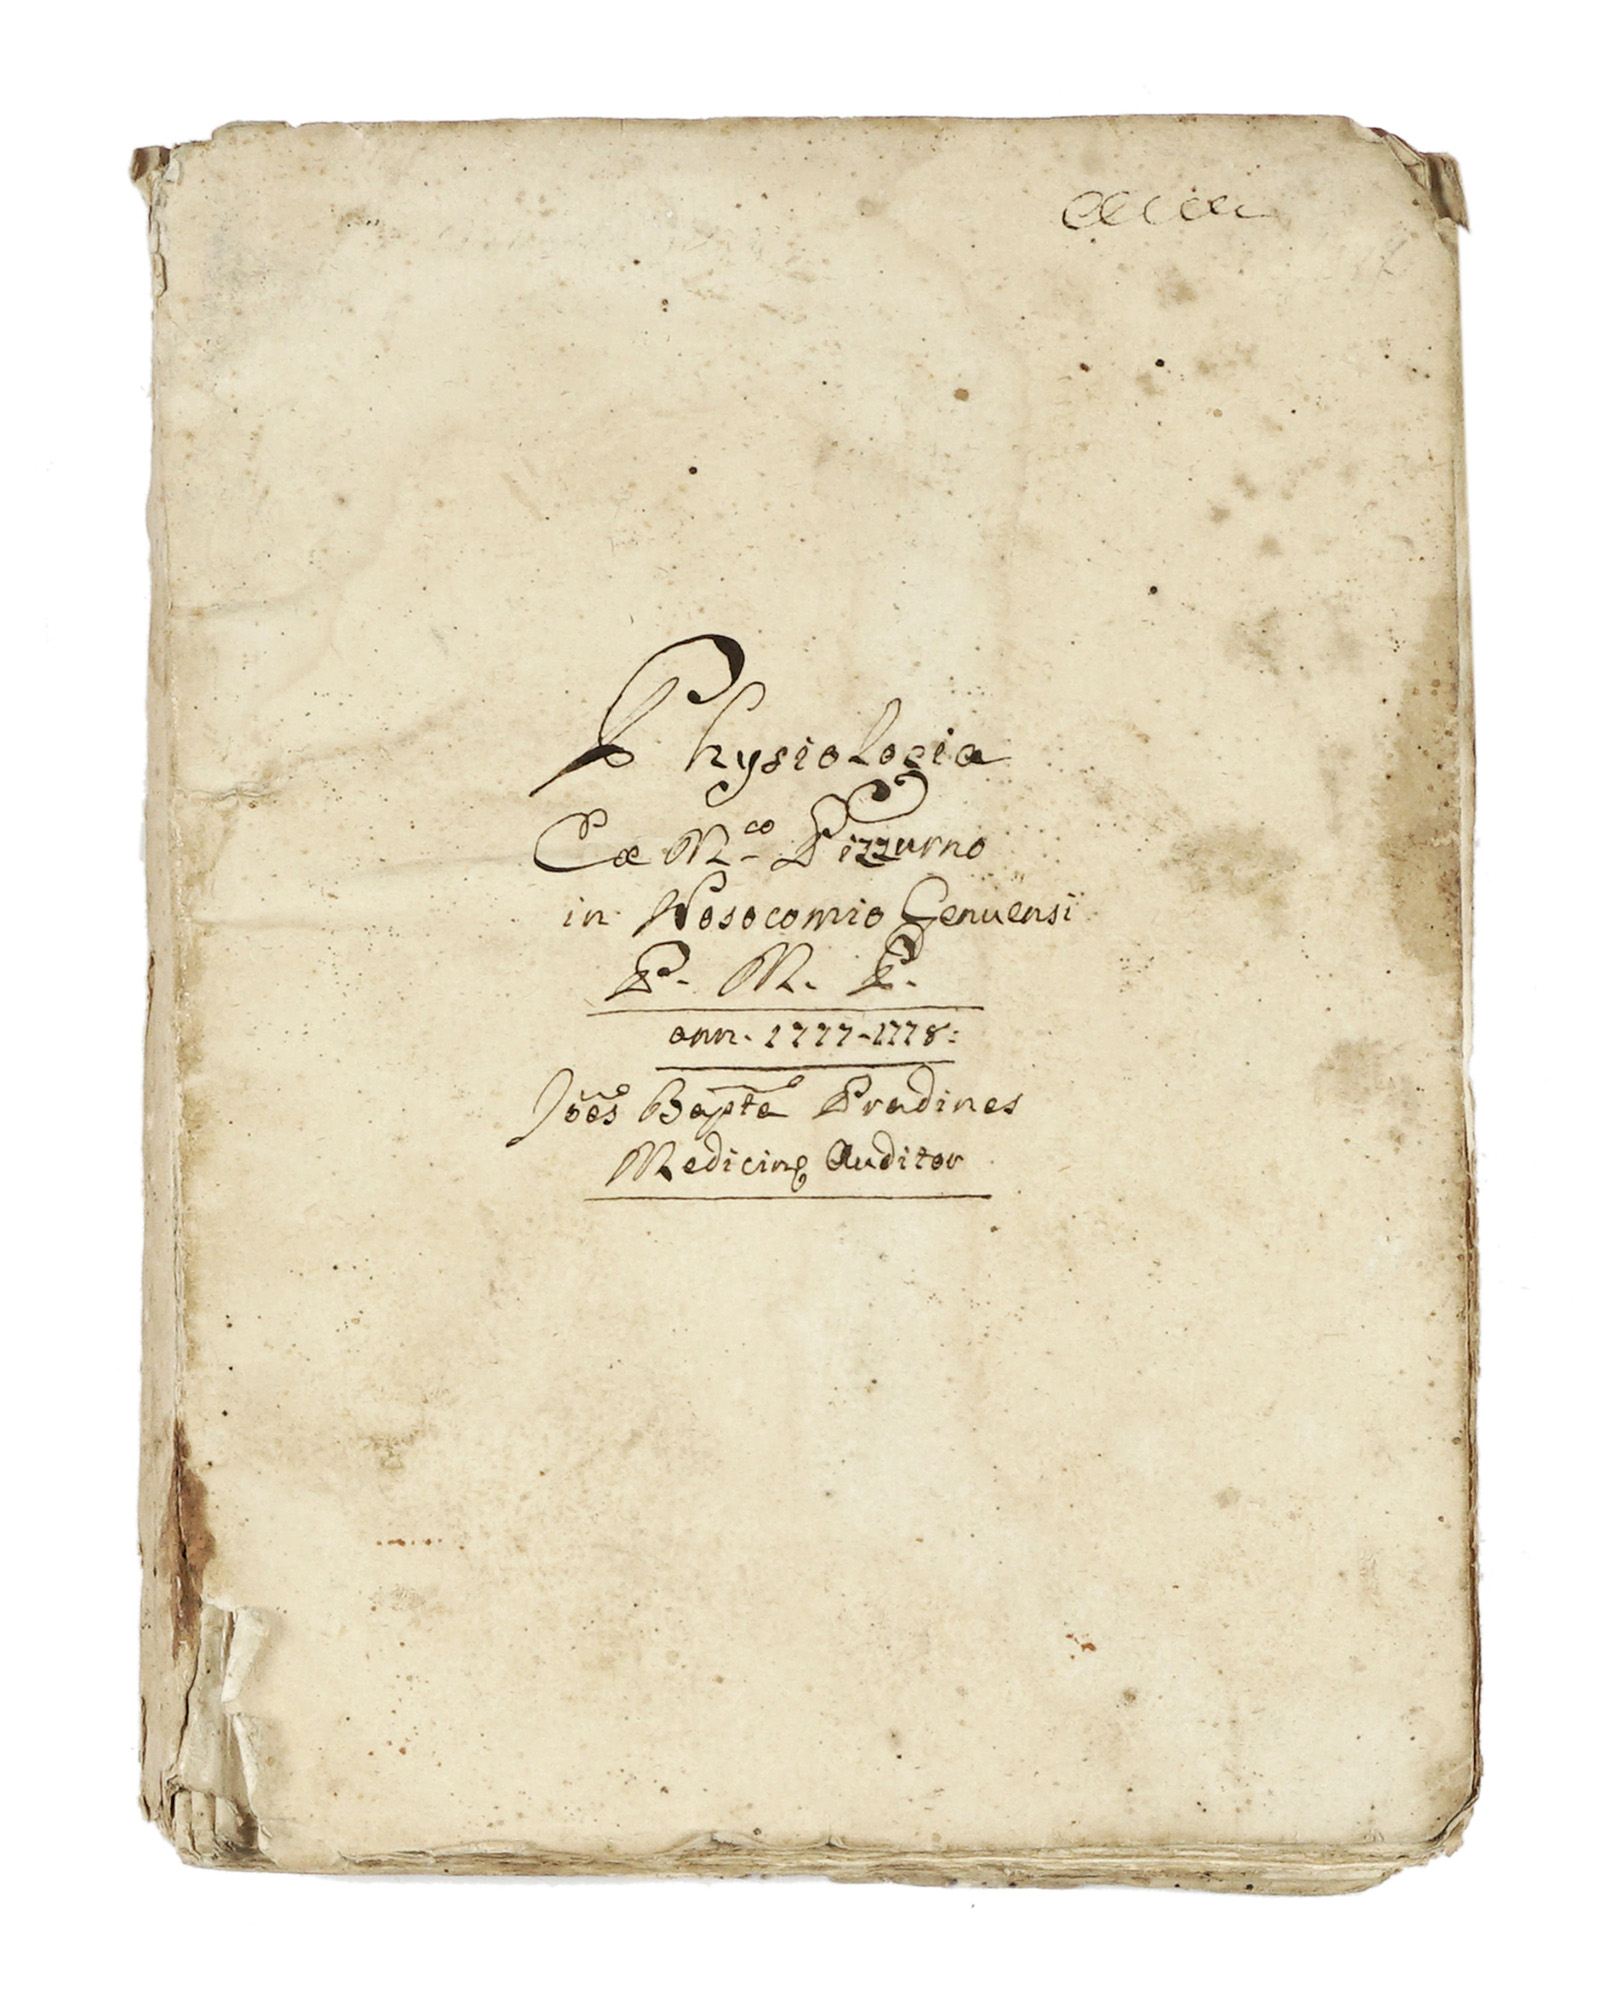 Physiologia
Ex M.co Pizzurno
in Nosocomio Genuensi
P. M. P.
ann. 1777-1778:
Joẽs Bapta Pradines
Medicinę Auditor